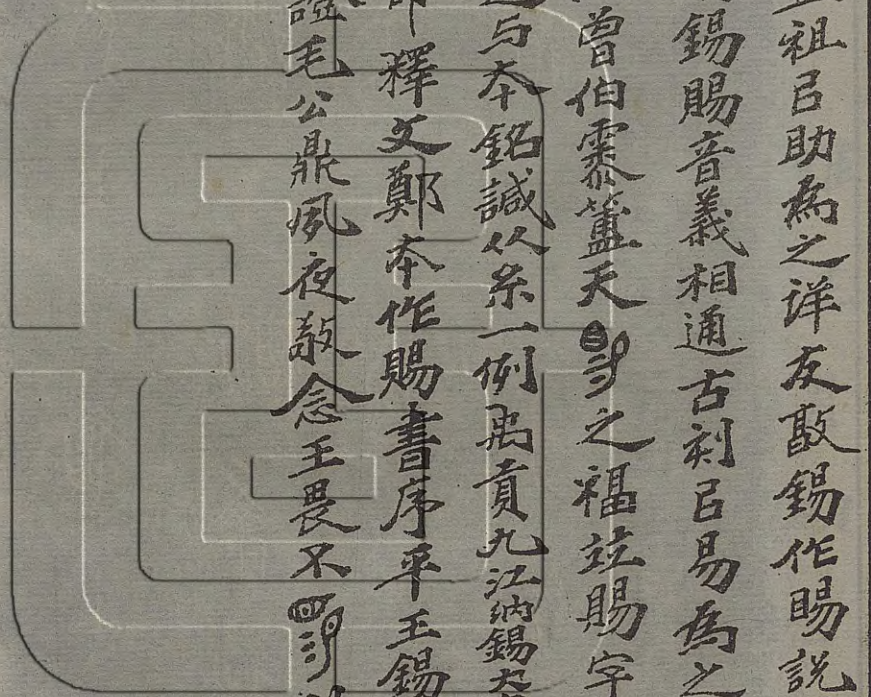 祖㠯助為之详友敼錫作賜説
錫賜音義相通古刻㠯易為之
曾伯霥簠天之福竝賜字
与夲銘諴从糸一例禹貢九江納錫大
釋文鄭夲作賜書序平王錫
證毛公鼎夙夜敬念王畏不